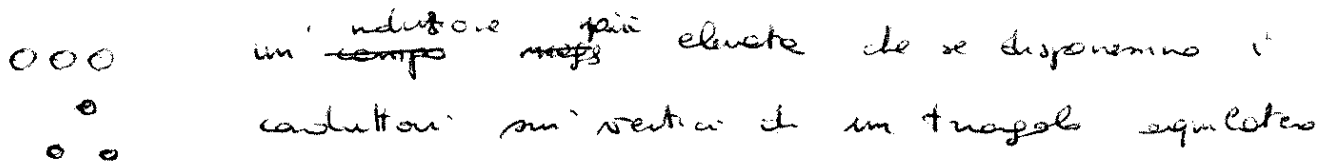 un' induzione più elevata che se disponessimo i
conduttori sui vertici di un triangolo equilatero